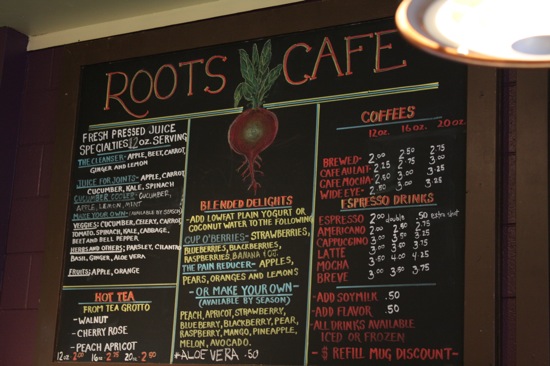 ROOTS CAFE
FRESH PRESSED JUICE
SPECIALTIES 12 oz. SERVING
THE CLEANSER- APPLE, BEET, CARROT,
GINGER AND LEMON
JUICE FOR JOINTS- APPLE, CARROT
CUCUMBER, KALE, SPINACH
CUCUMBER COOLER- CUCUMBER,
APPLE, LEMON, MINT
MAKE YOUR OWN- (AVAILABLE BY SEASON)
VEGGIES: CUCUMBER, CELERY, CARROT,
TOMATO, SPINACH, KALE, CABBAGE,
BEET AND BELL PEPPER
HERBS AND OTHERS: PARSLEY, CILANTRO,
BASIL, GINGER, ALOE VERA
FRUITS: APPLE, ORANGE
HOT TEA
FROM TEA GROTTO
-WALNUT
-CHERRY ROSE
-PEACH APRICOT
12 oz 2.00 16 oz 2.25 20 oz 2.50
BLENDED DELIGHTS
-ADD LOWFAT PLAIN YOGURT OR
COCONUT WATER TO THE FOLLOWING
CUP O'BERRIES- STRAWBERRIES,
BLUEBERRIES, BLACKBERRIES,
RASPBERRIES, BANANA
THE PAIN REDUCER- APPLES,
PEARS, ORANGES AND LEMONS
-OR MAKE YOUR OWN-
(AVAILABLE BY SEASON)
PEACH, APRICOT, STRAWBERRY,
BLUEBERRY, BLACKBERRY, PEAR,
RASPBERRY, MANGO, PINEAPPLE,
MELON, AVOCADO.
*ALOE VERA .50
COFFEES
12 oz. 16 oz. 20 oz.
BREWED- 2.00 2.50 2.75
CAFE AU LAIT- 2.25 2.75 3.25
CAFE MOCHA- 2.50 2.75 3.25
WIDE EYE- 3.00 3.25
ESPRESSO DRINKS
ESPRESSO 2.00 double .50 extra shot
AMERICANO 2.00 2.50 2.75
CAPPUCCINO 3.00 3.50 3.75
LATTE 3.00 3.50 3.75
MOCHA 3.50 4.00 4.25
BREVE 3.00 3.50 3.75
-ADD SOYMILK .50
-ADD FLAVOR .50
-ALL DRINKS AVAILABLE
ICED OR FROZEN
-$ REFILL MUG DISCOUNT-